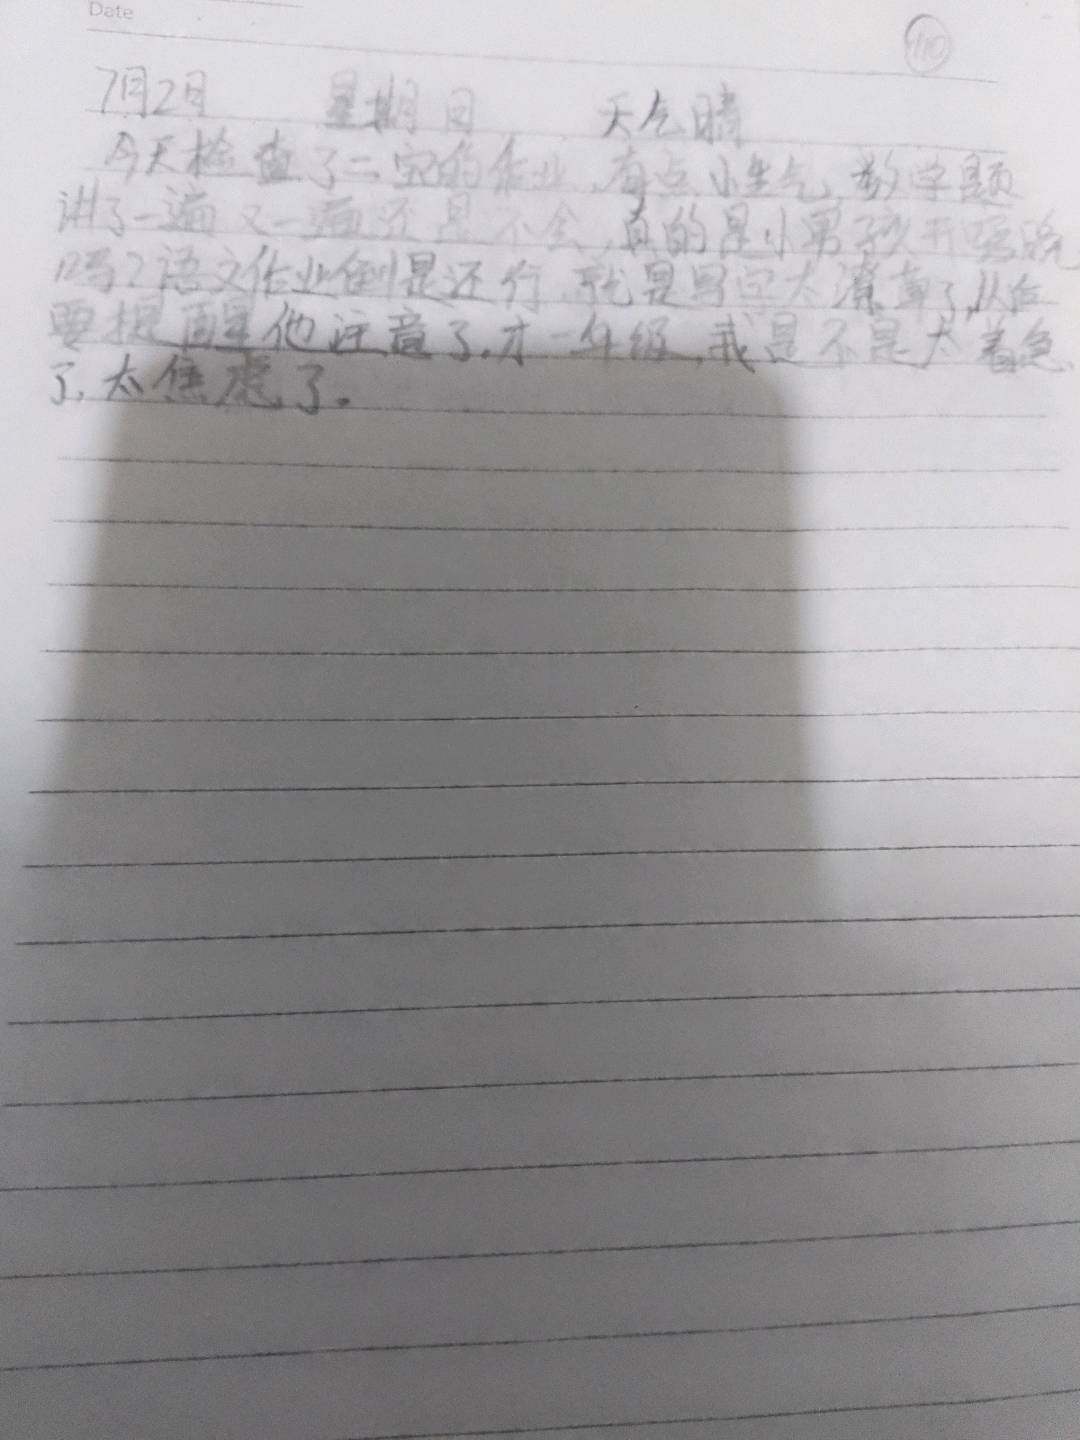 Date
110
7月2日 星期日 天气晴
今天检查了二宝的作业,有点小生气,数学题
讲了一遍又一遍还是不会,真的是小男孩开窍晚
吗?语文作业倒是还行,就是写字太潦草了,以后
要提醒他注意了。才一年级,我是不是太着急
了,太焦虑了。